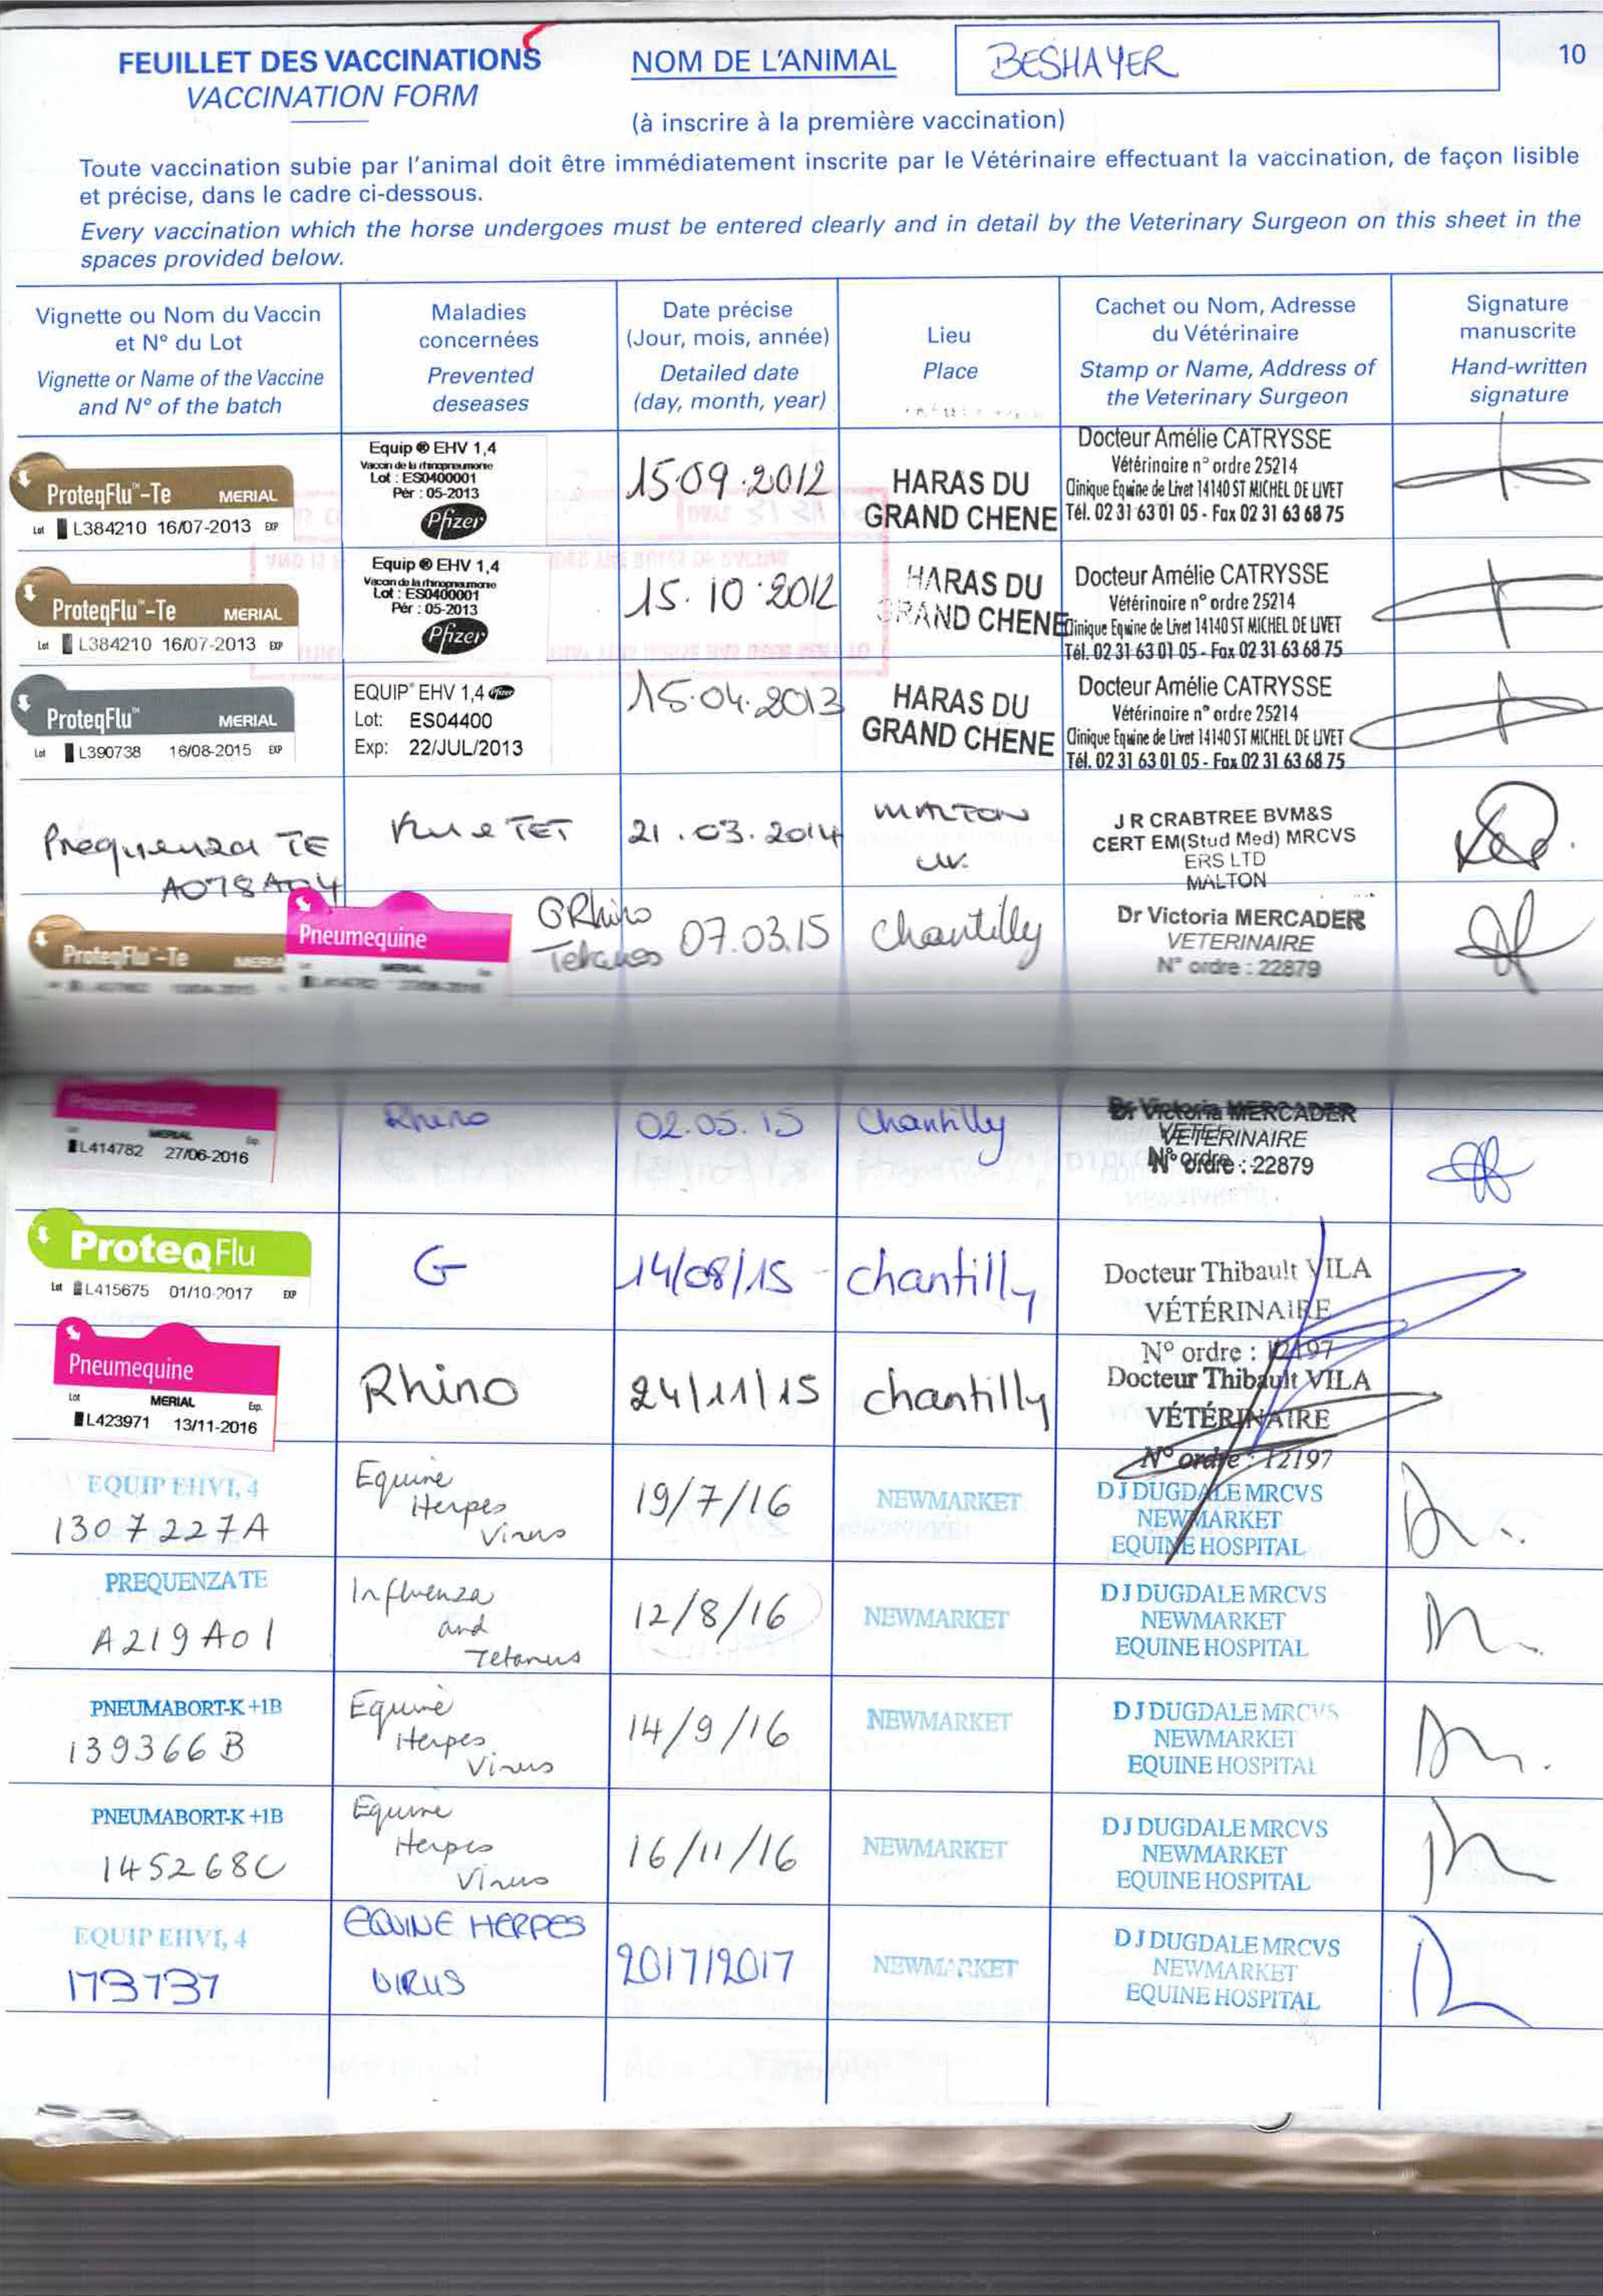 FEUILLET DES VACCINATIONS
VACCINATION FORM
NOM DE L'ANIMAL
BESHAYER
10
(à inscrire à la première vaccination)
Toute vaccination subie par l'animal doit être immédiatement inscrite par le Vétérinaire effectuant la vaccination, de façon lisible
et précise, dans le cadre ci-dessous.
Every vaccination which the horse undergoes must be entered clearly and in detail by the Veterinary Surgeon on this sheet in the
spaces provided below.
Vignette ou Nom du Vaccin
et N° du Lot
Vignette or Name of the Vaccine
and N° of the batch
Maladies
concernées
Prevented
deseases
Date précise
(Jour, mois, année)
Detailed date
(day, month, year)
Lieu
Place
Cachet ou Nom, Adresse
du Vétérinaire
Stamp or Name, Address of
the Veterinary Surgeon
Signature
manuscrite
Hand-written
signature
ProteqFlu™-Te MERIAL
Lot L384210 16/07-2013 EXP
Equip ® EHV 1,4
Vaccin de la rhinopneumonie
Lot : ES0400001
Pér : 05-2013
Pfizer
15.09.2012
HARAS DU
GRAND CHENE
Docteur Amélie CATRYSSE
Vétérinaire n° ordre 25214
Clinique Equine de Livet 14140 ST MICHEL DE LIVET
Tél. 02 31 63 01 05 - Fax 02 31 63 68 75
ProteqFlu™-Te MERIAL
Lot L384210 16/07-2013 EXP
Equip ® EHV 1,4
Vaccin de la rhinopneumonie
Lot : ES0400001
Pér : 05-2013
Pfizer
15.10.2012
HARAS DU
GRAND CHENE
Docteur Amélie CATRYSSE
Vétérinaire n° ordre 25214
Clinique Equine de Livet 14140 ST MICHEL DE LIVET
Tél. 02 31 63 01 05 - Fax 02 31 63 68 75
ProteqFlu™ MERIAL
Lot L390738 16/08-2015 EXP
EQUIP® EHV 1,4 Pfizer
Lot: ES04400
Exp: 22/JUL/2013
15.04.2013
HARAS DU
GRAND CHENE
Docteur Amélie CATRYSSE
Vétérinaire n° ordre 25214
Clinique Equine de Livet 14140 ST MICHEL DE LIVET
Tél. 02 31 63 01 05 - Fax 02 31 63 68 75
Prequenza TE
A078A04
TET
21.03.2014
MALTON
UK
J R CRABTREE BVM&S
CERT EM(Stud Med) MRCVS
ERS LTD
MALTON
ProteqFlu™-Te MERIAL
Pneumequine
MERIAL
GRhino
Tetanos
07.03.15
Chantilly
Dr Victoria MERCADER
VETERINAIRE
N° ordre : 22879
Pneumequine
MERIAL Exp.
L414782 27/06-2016
Rhino
02.05.15
Chantilly
Dr Victoria MERCADER
VETERINAIRE
N° ordre : 22879
ProteqFlu
Lot L415675 01/10-2017 EXP
G
14/08/15
chantilly
Docteur Thibault VILA
VÉTÉRINAIRE
N° ordre : 12197
Pneumequine
Lot MERIAL Exp.
L423971 13/11-2016
Rhino
24/11/15
chantilly
Docteur Thibault VILA
VÉTÉRINAIRE
N° ordre : 12197
EQUIP EHV1, 4
1307227A
Equine
Herpes
Virus
19/7/16
NEWMARKET
D J DUGDALE MRCVS
NEWMARKET
EQUINE HOSPITAL
PREQUENZA TE
A219A01
Influenza
and
Tetanus
12/8/16
NEWMARKET
D J DUGDALE MRCVS
NEWMARKET
EQUINE HOSPITAL
PNEUMABORT-K +1B
139366B
Equine
Herpes
Virus
14/9/16
NEWMARKET
D J DUGDALE MRCVS
NEWMARKET
EQUINE HOSPITAL
PNEUMABORT-K +1B
145268C
Equine
Herpes
Virus
16/11/16
NEWMARKET
D J DUGDALE MRCVS
NEWMARKET
EQUINE HOSPITAL
EQUIP EHV1, 4
173737
EQUINE HERPES
VIRUS
20/7/2017
NEWMARKET
D J DUGDALE MRCVS
NEWMARKET
EQUINE HOSPITAL